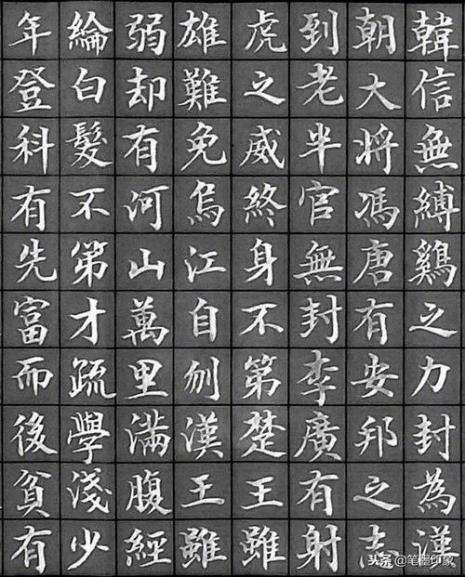 韓信無縛鷄之力封為漢
朝大將馮唐有安邦之志
到老半官無封李廣有射
虎之威終身不第楚王雖
雄難免烏江自刎漢王雖
弱却有河山萬里滿腹經
綸白髮不第才疏學淺少
年登科有先富而後貧有
头条 @笔墨印象